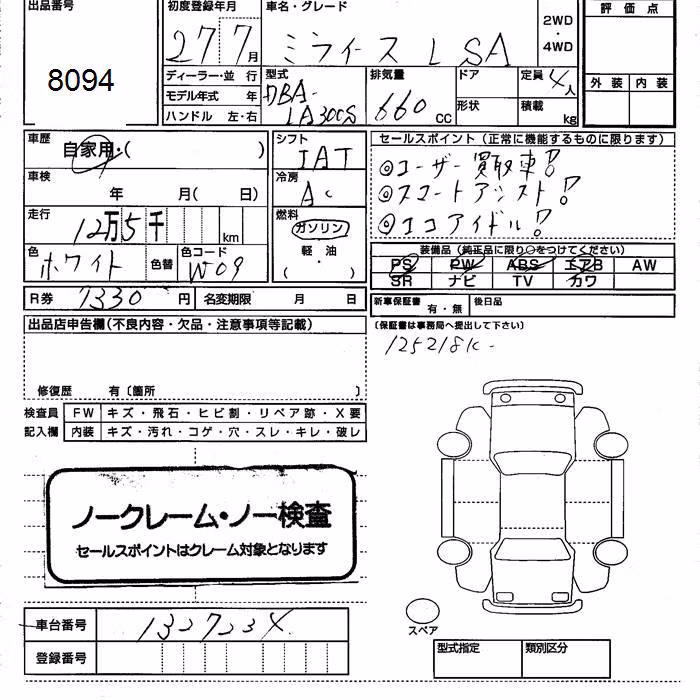 出品番号
8094
初度登録年月 27 7月
車名・グレード ミライース L SA
2WD・4WD
評価点
外装 内装
ディーラー・並行
モデル年式 年
ハンドル 左・右
型式 DBA-LA300S
排気量 660 CC
ドア
形状
定員 4人
積載 kg
車歴 自家用・( )
シフト IAT
車検 年 月( 日)
冷房 AC
走行 12万5千 km
燃料 ガソリン 軽・油 ( )
色 ホワイト 色替
色コード W09
R券 7330円 名変期限 月 日
セールスポイント(正常に機能するものに限ります)
◎ユーザー買取車!
◎スマートアシスト!
◎エコアイドル!
装備品(純正品に限り○をつけてください)
PS PW ABS エアB AW
SR ナビ TV カワ
新車保証書 有・無 後日品
(保証書は事務局へ提出して下さい)
出品店申告欄(不良内容・欠品・注意事項等記載)
125218K-
修復歴 有〔箇所 〕
検査員記入欄
FW キズ・飛石・ヒビ割・リペア跡・X要
内装 キズ・汚れ・コゲ・穴・スレ・キレ・破レ
ノークレーム・ノー検査
セールスポイントはクレーム対象となります
車台番号 132723X
登録番号
スペア
型式指定 類別区分